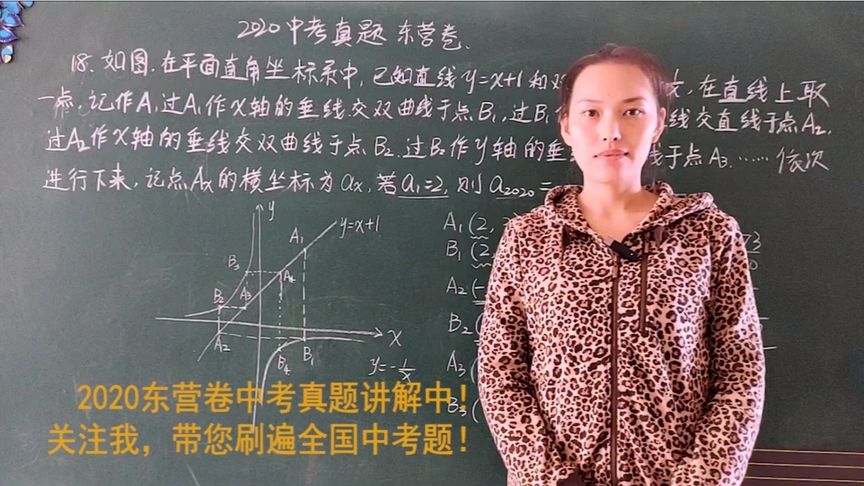 2020中考真题 东营卷.
18.如图.在平面直角坐标系中,已知直线y=x+1和双 在直线上取
一点,记作A₁过A₁作x轴的垂线交双曲线于点B₁,过B₁ 线交直线于点A₂,
过A₂作x轴的垂线交双曲线于点B₂.过B₂作y轴的垂 于点A₃.……依次
进行下来,记点Aₙ的横坐标为aₙ,若a₁=2,则a₂₀₂₀=
y
y=x+1
A₁
A₁(2,
B₁(2,
B₃
A₄
B₂
A₃
A₂(-
x
B₂(
A₂
B₄
B₁
y=-1/x
A₃(
B₃(
2020东营卷中考真题讲解中!
关注我，带您刷遍全国中考题!